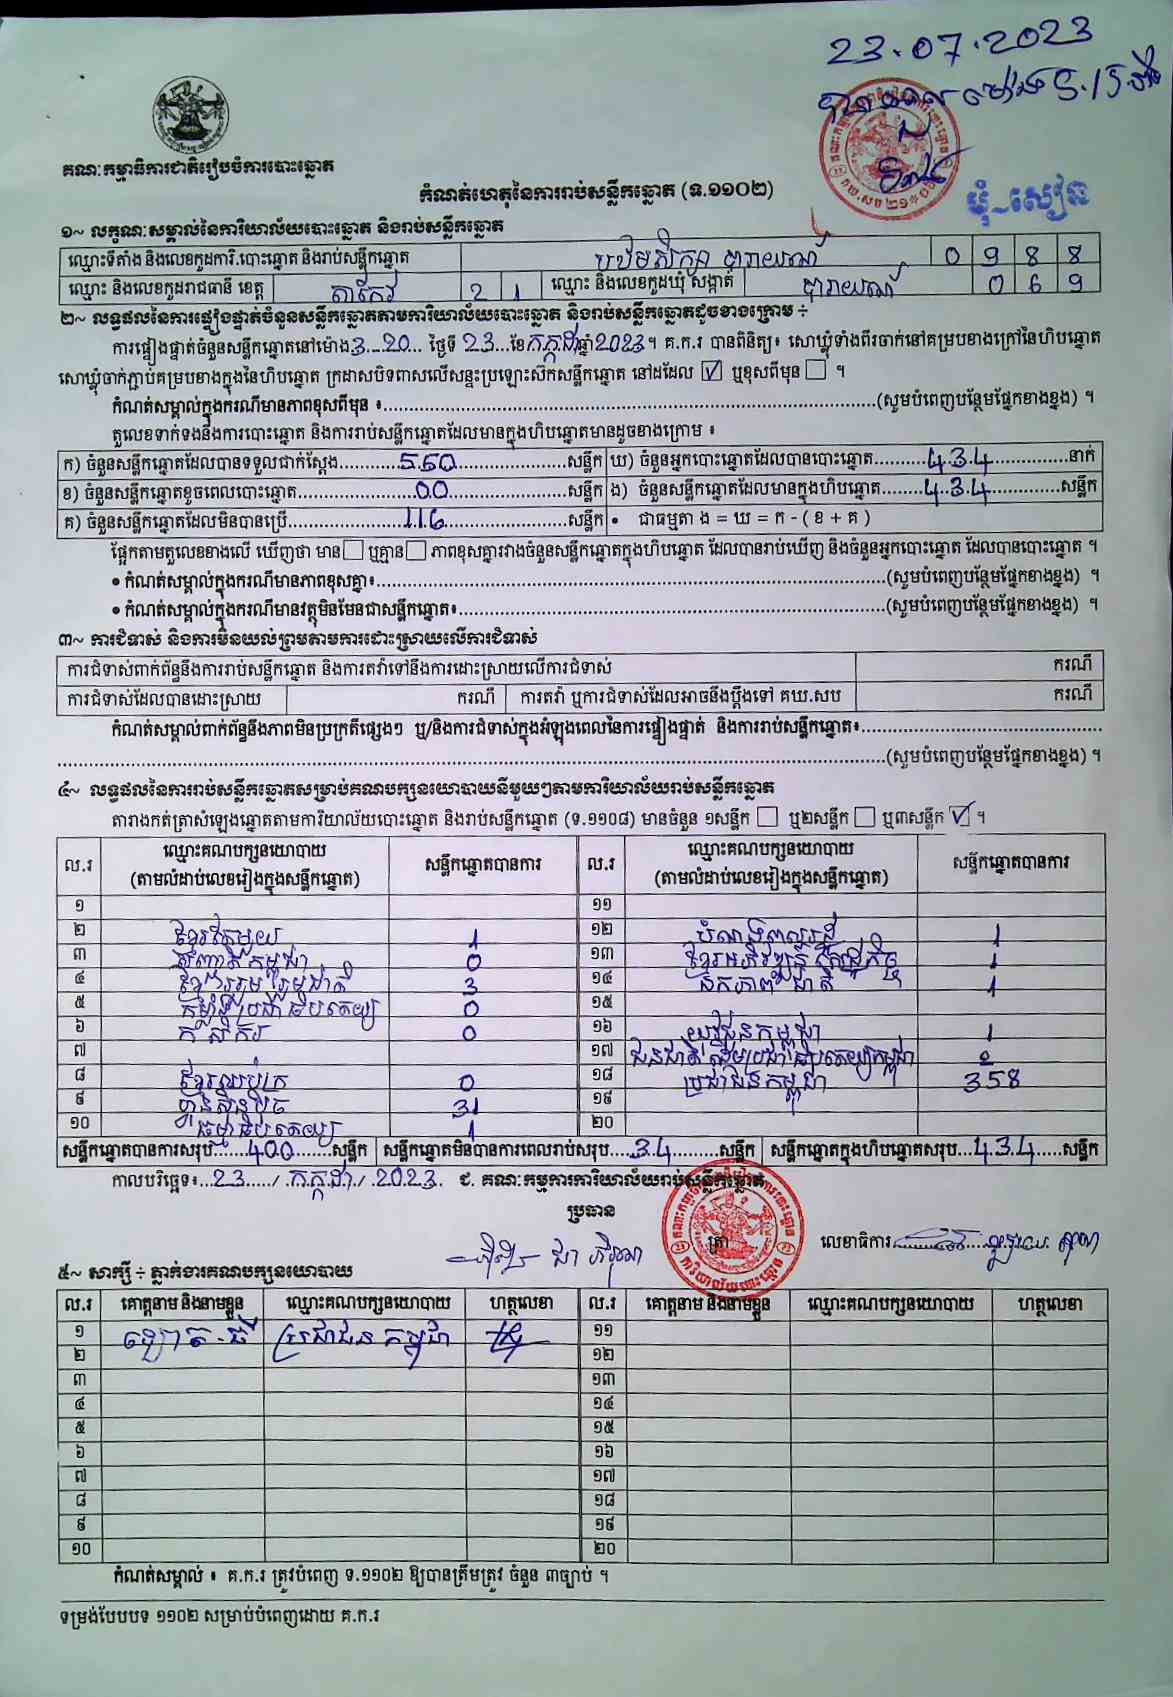 23.07.2023
ម៉ោង 5.15
គណៈកម្មាធិការជាតិរៀបចំការបោះឆ្នោត
កំណត់ហេតុនៃការរាប់សន្លឹកឆ្នោត (ទ.១១០២)
១~ លក្ខណៈសម្គាល់នៃការិយាល័យបោះឆ្នោត និងរាប់សន្លឹកឆ្នោត
ឈ្មោះទីតាំង និងលេខកូដការិ.បោះឆ្នោត និងរាប់សន្លឹកឆ្នោត បឋមសិក្សា បារាយណ៍ 0 9 8 8
ឈ្មោះ និងលេខកូដរាជធានី ខេត្ត តាកែវ 2 1 ឈ្មោះ និងលេខកូដឃុំ សង្កាត់ បារាយណ៍ 0 6 9
២~ លទ្ធផលនៃការផ្ទៀងផ្ទាត់ចំនួនសន្លឹកឆ្នោតតាមការិយាល័យបោះឆ្នោត និងរាប់សន្លឹកឆ្នោតដូចខាងក្រោម ÷
ការផ្ទៀងផ្ទាត់ចំនួនសន្លឹកឆ្នោតនៅម៉ោង 3...20... ថ្ងៃទី 23...ខែកក្កដាឆ្នាំ2023។ គ.ក.រ បានពិនិត្យ៖ សោឃ្លុំទាំងពីរចាក់នៅគម្របខាងក្រៅនៃហិបឆ្នោត
សោឃ្លុំចាក់ភ្ជាប់គម្របខាងក្នុងនៃហិបឆ្នោត ក្រដាសបិទពាសលើសន្ទះប្រឡោះស៊កសន្លឹកឆ្នោត នៅដដែល ☑ ឬខុសពីមុន ☐ ។
កំណត់សម្គាល់ក្នុងករណីមានភាពខុសពីមុន ៖......(សូមបំពេញបន្ថែមផ្នែកខាងខ្នង) ។
តួលេខទាក់ទងនឹងការបោះឆ្នោត និងការរាប់សន្លឹកឆ្នោតដែលមានក្នុងហិបឆ្នោតមានដូចខាងក្រោម ៖
ក) ចំនួនសន្លឹកឆ្នោតដែលបានទទួលជាក់ស្តែង......560......សន្លឹក ឃ) ចំនួនអ្នកបោះឆ្នោតដែលបានបោះឆ្នោត......434......នាក់
ខ) ចំនួនសន្លឹកឆ្នោតខូចពេលបោះឆ្នោត......00......សន្លឹក ង) ចំនួនសន្លឹកឆ្នោតដែលមានក្នុងហិបឆ្នោត......434......សន្លឹក
គ) ចំនួនសន្លឹកឆ្នោតដែលមិនបានប្រើ......116......សន្លឹក • ជាធម្មតា ង = ឃ = ក - ( ខ + គ )
ផ្អែកតាមតួលេខខាងលើ ឃើញថា មាន ☐ ឬគ្មាន ☐ ភាពខុសគ្នារវាងចំនួនសន្លឹកឆ្នោតក្នុងហិបឆ្នោត ដែលបានរាប់ឃើញ និងចំនួនអ្នកបោះឆ្នោត ដែលបានបោះឆ្នោត ។
• កំណត់សម្គាល់ក្នុងករណីមានភាពខុសគ្នា៖......(សូមបំពេញបន្ថែមផ្នែកខាងខ្នង) ។
• កំណត់សម្គាល់ក្នុងករណីមានវត្ថុមិនមែនជាសន្លឹកឆ្នោត៖......(សូមបំពេញបន្ថែមផ្នែកខាងខ្នង) ។
៣~ ការជំទាស់ និងការមិនយល់ព្រមតាមការដោះស្រាយលើការជំទាស់
ការជំទាស់ពាក់ព័ន្ធនឹងការរាប់សន្លឹកឆ្នោត និងការតវ៉ាទៅនឹងការដោះស្រាយលើការជំទាស់ ករណី
ការជំទាស់ដែលបានដោះស្រាយ ករណី ការតវ៉ា ឬការជំទាស់ដែលអាចនឹងប្តឹងទៅ គឃ.សប ករណី
កំណត់សម្គាល់ពាក់ព័ន្ធនឹងភាពមិនប្រក្រតីផ្សេងៗ ឬ/និងការជំទាស់ក្នុងអំឡុងពេលនៃការផ្ទៀងផ្ទាត់ និងការរាប់សន្លឹកឆ្នោត៖......
......(សូមបំពេញបន្ថែមផ្នែកខាងខ្នង) ។
៤~ លទ្ធផលនៃការរាប់សន្លឹកឆ្នោតសម្រាប់គណបក្សនយោបាយនីមួយៗតាមការិយាល័យរាប់សន្លឹកឆ្នោត
តារាងកត់ត្រាសំឡេងឆ្នោតតាមការិយាល័យបោះឆ្នោត និងរាប់សន្លឹកឆ្នោត (ទ.១១០៨) មានចំនួន ១សន្លឹក ☐ ឬ២សន្លឹក ☐ ឬ៣សន្លឹក ☑ ។
ល.រ ឈ្មោះគណបក្សនយោបាយ (តាមលំដាប់លេខរៀងក្នុងសន្លឹកឆ្នោត) សន្លឹកឆ្នោតបានការ ល.រ ឈ្មោះគណបក្សនយោបាយ (តាមលំដាប់លេខរៀងក្នុងសន្លឹកឆ្នោត) សន្លឹកឆ្នោតបានការ
១ ១១
២ ខ្មែរតែមួយ 1 ១២ បំណងពលរដ្ឋ 1
៣ កម្ពុជា 0 ១៣ ខ្មែរអភិវឌ្ឍន៍សេដ្ឋកិច្ច 1
៤ ខ្មែររួបរួមជាតិ 3 ១៤ ឯកភាពជាតិ 1
៥ កម្លាំងប្រជាធិបតេយ្យ 0 ១៥
៦ កសិករ 0 ១៦ យុវជនកម្ពុជា 1
៧ ១៧ ជនជាតិដើមប្រជាធិបតេយ្យកម្ពុជា 2
៨ ខ្មែរឈប់ក្រ 0 ១៨ ប្រជាជនកម្ពុជា 358
៩ ហ្វ៊ុនស៊ិនប៉ិច 31 ១៩
១០ ធម្មាធិបតេយ្យ 1 ២០
សន្លឹកឆ្នោតបានការសរុប......400......សន្លឹក សន្លឹកឆ្នោតមិនបានការពេលរាប់សរុប...34......សន្លឹក សន្លឹកឆ្នោតក្នុងហិបឆ្នោតសរុប...434...សន្លឹក
កាលបរិច្ឆេទ៖...23...../.កក្កដា./.2023. ជ. គណៈកម្មការការិយាល័យរាប់សន្លឹកឆ្នោត
ប្រធាន
ត្រា លេខាធិការ
៥~ សាក្សី ÷ ភ្នាក់ងារគណបក្សនយោបាយ
ល.រ គោត្តនាម និងនាមខ្លួន ឈ្មោះគណបក្សនយោបាយ ហត្ថលេខា ល.រ គោត្តនាម និងនាមខ្លួន ឈ្មោះគណបក្សនយោបាយ ហត្ថលេខា
១ ប្រជាជនកម្ពុជា ១១
២ ១២
៣ ១៣
៤ ១៤
៥ ១៥
៦ ១៦
៧ ១៧
៨ ១៨
៩ ១៩
១០ ២០
កំណត់សម្គាល់ ៖ គ.ក.រ ត្រូវបំពេញ ទ.១១០២ ឱ្យបានត្រឹមត្រូវ ចំនួន ៣ច្បាប់ ។
ទម្រង់បែបបទ ១១០២ សម្រាប់បំពេញដោយ គ.ក.រ